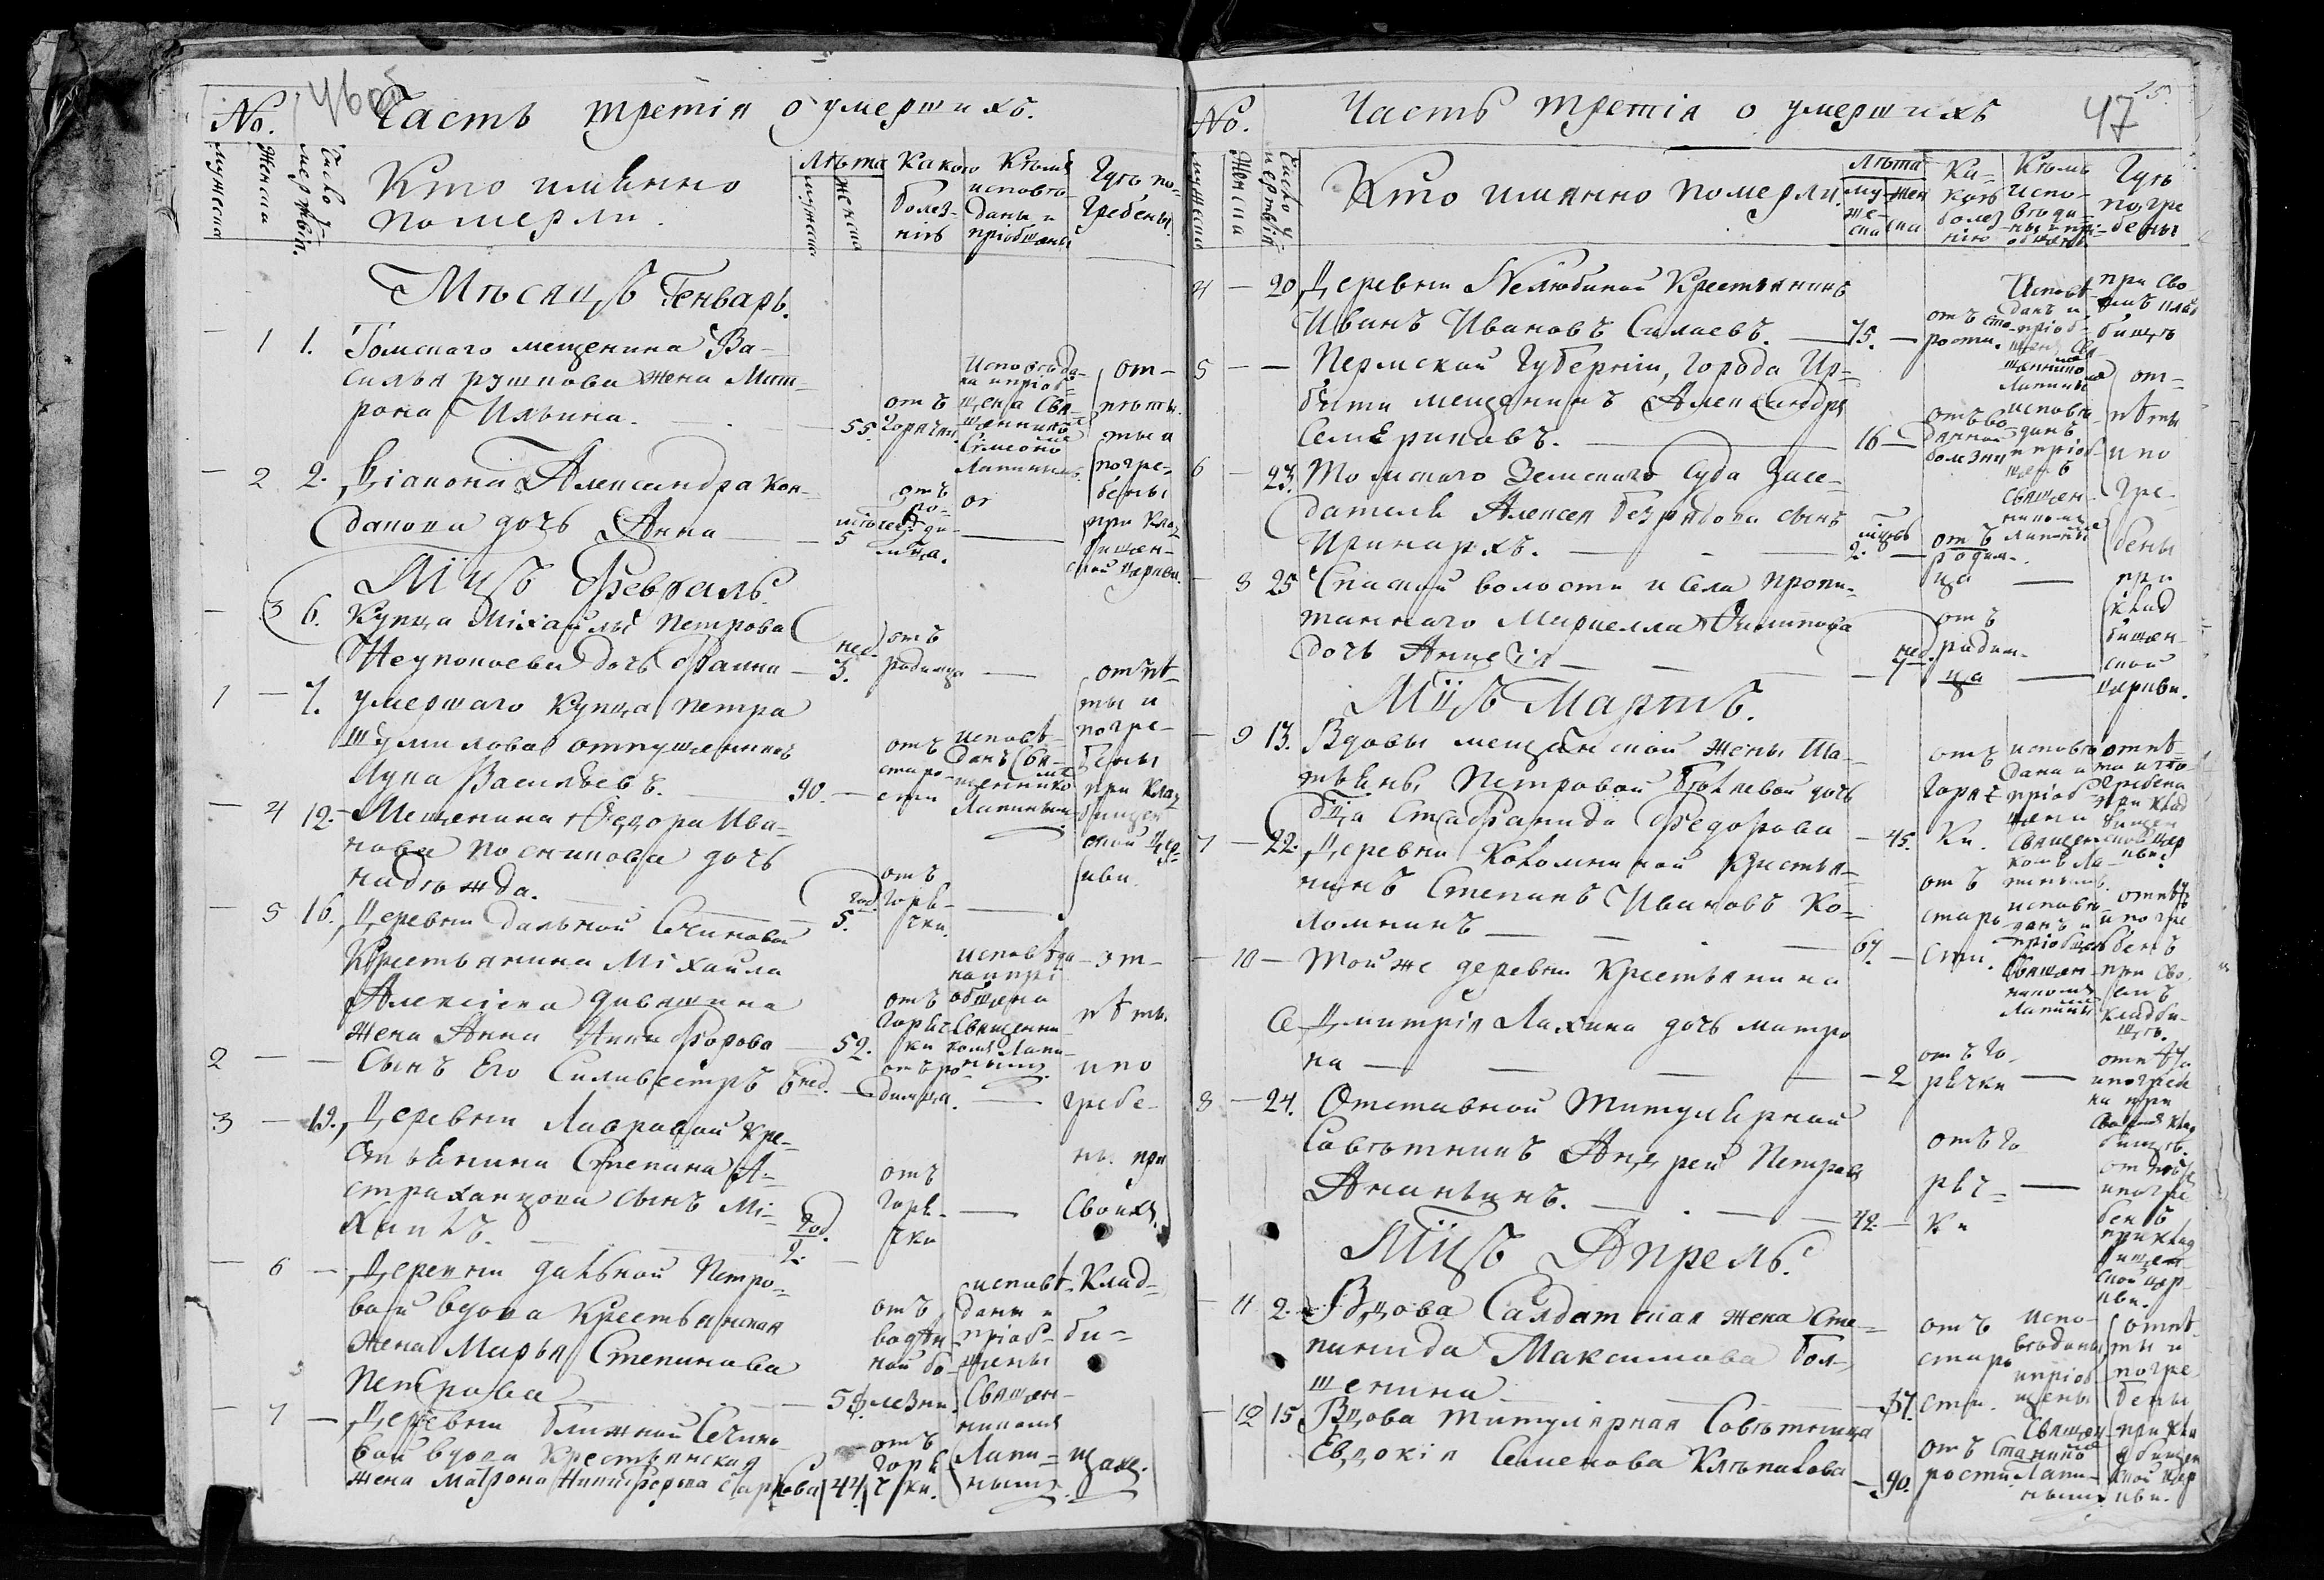 46 об
Часть третія о умершихъ.
No.
мужеска
женска
Число умертвій.
Кто имянно
померли.
Лѣта
мужеска
женска
Какою
болез-
нію
Кѣмъ
исповѣ-
даны и
пріобщены
Гдѣ по-
гребены
Мѣсяцъ Генварь.
1 1. Томскаго мещенина Ва-
силья жена Мат-
рона Ильина. 55. отъ горячки исповѣда-
на и пріоб-
щена Свя-
щеннико
Симеоно
Лапинымъ
от-
пѣты
и
погре-
бены
при клад-
бищен-
ской церкви.
2 2. Діакона Александра Кон-
дакова дочь Анна 5 отъ ро-
димца.
Мцъ Февраль.
3 6. Купца Михайлы Петрова
дочь Фаина нед. 3. отъ родимца
1 7. Умершаго купца Петра
Шумилова отпущенникъ
Лука Васильевъ. 90. отъ старо-
сти
исповѣ-
данъ Свя-
щеннико
Лапинымъ
отпѣ-
ты и
погре-
бены
при клад-
бищен-
ской цер-
кви.
4 12. Мещенина Ѳедора Ива-
нова дочь
Надѣжда. год. 5. отъ горя-
чки.
5 16. Деревни дальной Сечиновой
Крестьянина Михайла
Алексѣева
жена Анна Никифорова 52. отъ горяч-
ки
исповѣда-
на и прі-
общена
Священни-
комъ Лапи-
нымъ
от-
пѣты
2 Сынъ Его Силивестръ 6 нед. отъ ро-
димца. и по
3 19. Деревни Лавровой кре-
стьянина Степана А-
страханцова сынъ Ми-
хаилъ. год. 2. отъ горя-
чки
гребе-
ны при
Своихъ
6 Деревни дальной Петро-
вой вдова крестьянская
жена Марья Степанова
Петрова 58. отъ
водян-
ной бо-
лезни.
исповѣ-
даны и
пріоб-
щены
Священ-
никомъ
Лапи-
нымъ
Клад-
би-
щахъ.
7 Деревни ближной Сечино-
вой вдова крестьянская
жена Матрона Никифорова 44. отъ горя
чки.
47
15.
Часть третія о умершихъ
No.
мужеска
женска
Число у-
мертвій
Кто имянно померли.
Лѣта
му-
же-
ска
жен
ска
Ка-
кою
болез-
нію
Кѣмъ
испо-
вѣда-
ны и прі-
общены
Гдѣ
погре
бены
4 20 Деревни Нелюбиной Крестьянинъ
Иванъ Ивановъ Силаевъ. 75. отъ ста-
рости.
Исповѣ-
данъ и
пріоб-
щенъ Свя
щеннико
Лапинымъ
при сво-
емъ клад-
бищѣ
5 Пермской Губерніи, города Ир-
бити мещенинъ Александръ
Семериковъ. 16 отъ во-
дянной
болезни
исповѣ-
данъ
и пріоб-
щенъ
Священ-
никомъ
Лапинымъ
от-
пѣты
и по
гре-
бены
6 23. Томскаго Земскаго Суда Засе-
дателя Алексея Безрядова сынъ
Иринархъ. 2. отъ родим-
ца
при
8 25 Спаской волости и села пропи-
таннаго Маркелла Филипова
дочь Анисія нед. 7 отъ
родим-
ца
клад
бищен-
ской
церкви.
Мцъ Мартъ.
9 13. Вдовы мещанской жены Та-
тьяны Петровой дочь
дѣвица Стефанида Федорова 45. отъ
горяч
ки.
исповѣ
дана и
пріоб
щена
Священ
комъ Ла-
пинымъ.
отпѣ-
та и по-
гребена
при клад
бищен
ской цер
кви.
7 22. Деревни Коломниной крестья-
нинъ Степанъ Ивановъ Ко-
ломнинъ 67. отъ
старо
сти.
исповѣ-
данъ и
пріобщен
Священ-
никомъ
Лапинымъ
отпѣтъ
и погре
бенъ
при сво
емъ
кладби-
щѣ.
10 Той же деревни крестьянина
Дмитрія Лахина дочь Матро
на 2 отъ го-
рячки
отпѣта
и погребе
на при
своемъ клад
бищѣ.
8 24. Отставной Титулярной
Совѣтникъ Андрей Петровъ
Ананьинъ. 42 отъ го
ряч-
ки
отпѣтъ
и погре
бенъ
при клад
бищен-
ской цер-
кви.
Мцъ Апрель.
11 2. Вдова Салдатская жена Сте-
панида Максимова Бол-
шенина 37. отъ
старо
сти.
испо-
вѣданы
и пріоб-
щены
Священ
нико
Лапи-
нымъ
отпѣ-
ты и
погре
бены
при кла
дбищен
ской цер
кви.
12 15 Вдова титулярная Совѣтница
Евдокія Семенова Клѣпикова 90. отъ ста
рости